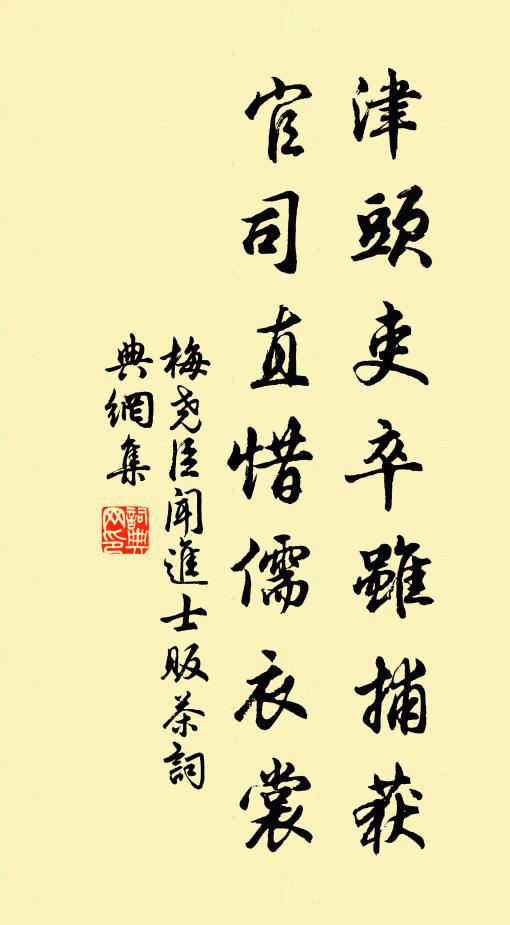 津頭吏卒雖捕获
官司直惜儒衣裳
梅尧臣闻進士販茶詞
典網集
詞典
网印